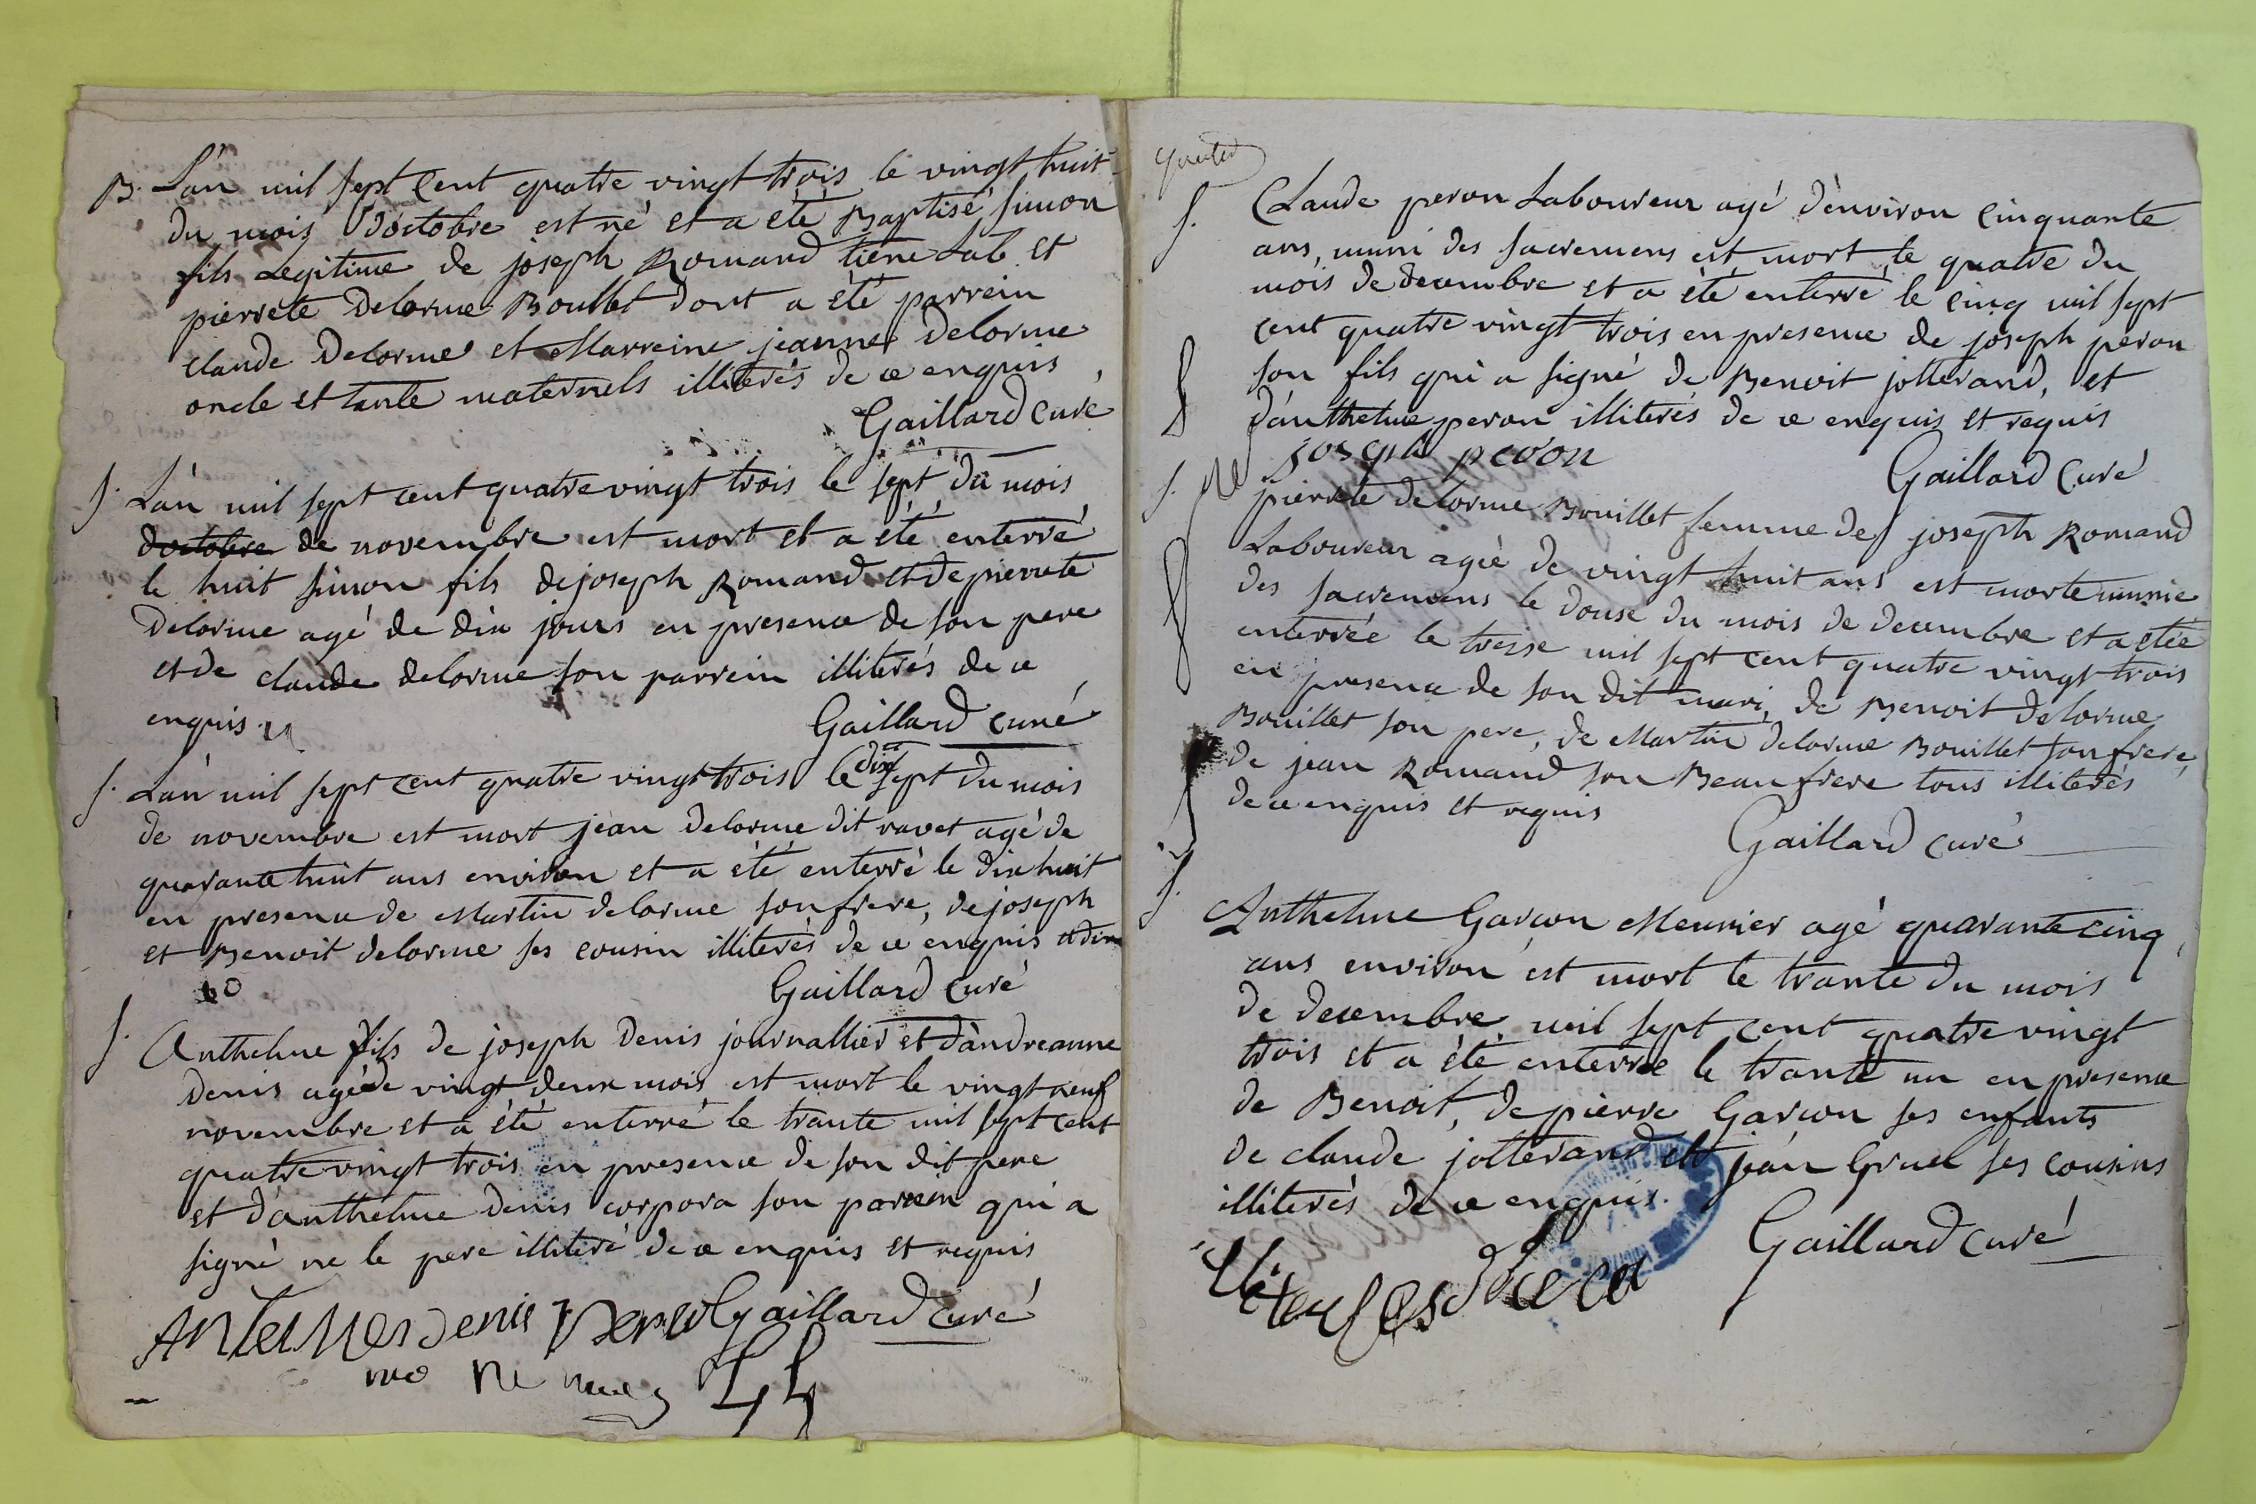 B. L'an mil sept cent quatre vingt trois le vingt huit
du mois d'octobre est né et a été Baptisé simon
fils Legitime de joseph Romand tiene Lab et
pierrete Delorme Boullet dont a été parrein
claude Delorme et Marreine jeanne Delorme
oncle et tante maternels illiterés de ce enquis
Gaillard Curé
S. L'an mil sept cent quatre vingt trois le sept du mois
d'octobre de novembre est mort et a été enterré
le huit simon fils de joseph Romand et de pierrete
Delorme agé de dix jours en presence de son pere
et de claude delorme son parrein illiterés de ce
enquis
Gaillard curé
S. L'an mil sept cent quatre vingt trois le dix sept du mois
de novembre est mort jean delorme dit ravet agé de
quarante huit ans environ et a été enterré le dix huit
en presence de Martin delorme son frere, de joseph
et Benoit delorme ses cousin illiterés de ce enquis
Gaillard Curé
S. Anthelme fils de joseph Denis journallier et d'andreanne
Denis agé de vingt deux mois est mort le vingt neuf
novembre et a été enterré le trante mil sept cent
quatre vingt trois en presence de son dit pere
et d'anthelme Denis corpora son parrein qui a
signé ne le pere illiteré de ce enquis et requis
Gaillard Curé
S. Claude peron Laboureur agé d'environ cinquante
ans, muni des sacremens est mort le quatre du
mois de decembre et a été enterré le cinq mil sept
cent quatre vingt trois en presence de joseph peron
son fils qui a signé de Benoit jotterand, et
d'anthelme peron illiterés de ce enquis et requis
joseph peron
Gaillard Curé
S. pierrete delorme Bouillet femme de joseph Romand
Laboureur agée de vingt huit ans est morte munie
des sacremens le douse du mois de decembre et a etée
enterrée le treise mil sept cent quatre vingt trois
en presence de son dit mari, de Benoit delorme
Bouillet son pere, de Martin delorme Bouillet son frere,
de jean Romand son Beaufrere tous illiterés
de ce enquis et requis
Gaillard curé
S. Anthelme Garcon Meunier agé quarante cinq
ans environ est mort le trante du mois
de decembre mil sept cent quatre vingt
trois et a été enterré le trante un en presence
de Benoit, de pierre Garcon ses enfants
de claude jotterand et jean Gruel ses cousins
illiterés de ce enquis.
Gaillard curé